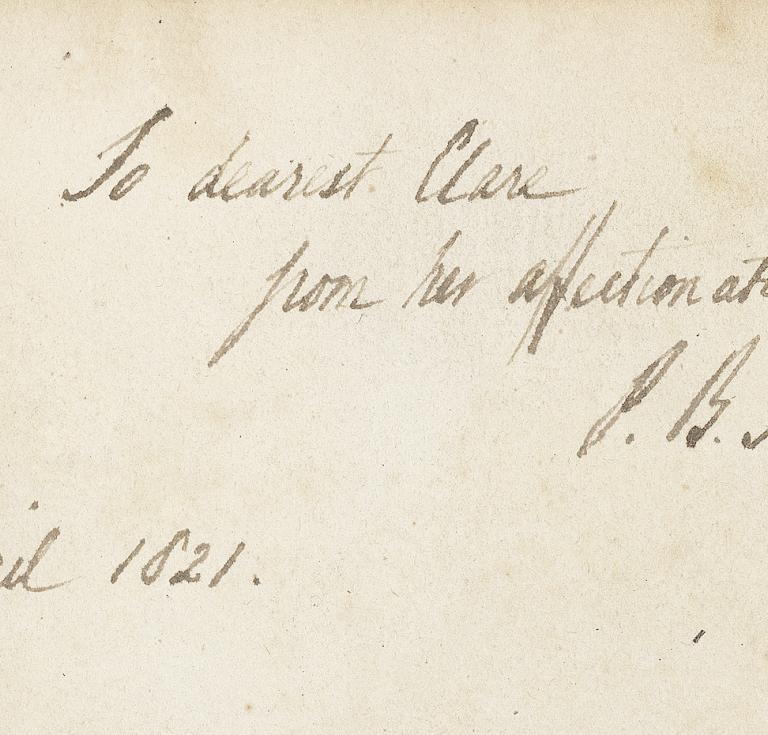 To dearest Clare
from her affectionat
P. B.
il 1821.